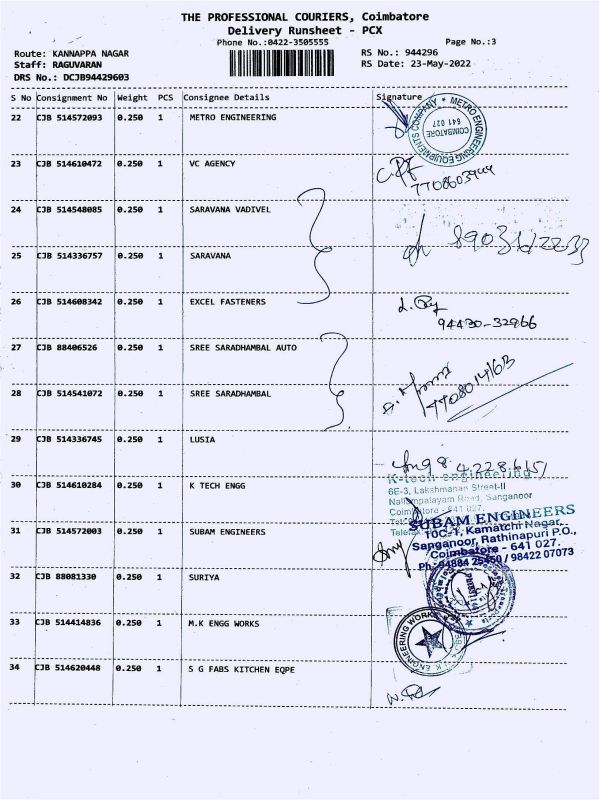 THE PROFESSIONAL COURIERS, Coimbatore
Delivery Runsheet - PCX
Phone No.:0422-3505555
Page No.:3
Route: KANNAPPA NAGAR
RS No.: 944296
Staff: RAGUVARAN
RS Date: 23-May-2022
DRS No.: DCJB94429603
S No Consignment No Weight PCS Consignee Details Signature
22 CJB 514572093 0.250 1 METRO ENGINEERING
METRO ENGINEERING EQUIPMENTS COMPANY
COIMBATORE
641 027
23 CJB 514610472 0.250 1 VC AGENCY
24 CJB 514548085 0.250 1 SARAVANA VADIVEL
25 CJB 514336757 0.250 1 SARAVANA
26 CJB 514608342 0.250 1 EXCEL FASTENERS
94430-32966
27 CJB 88406526 0.250 1 SREE SARADHAMBAL AUTO
28 CJB 514541072 0.250 1 SREE SARADHAMBAL
7708014163
29 CJB 514336745 0.250 1 LUSIA
30 CJB 514610284 0.250 1 K TECH ENGG
K-tech engineering
6E-3, Lakshmanan Street-II
Nallampalayam Road, Sanganoor
Coimbatore - 641 027.
31 CJB 514572003 0.250 1 SUBAM ENGINEERS
SUBAM ENGINEERS
10C-1, Kamatchi Nagar,
Sanganoor, Rathinapuri P.O.,
Coimbatore - 641 027.
32 CJB 88081330 0.250 1 SURIYA
33 CJB 514414836 0.250 1 M.K ENGG WORKS
34 CJB 514620448 0.250 1 S G FABS KITCHEN EQPE